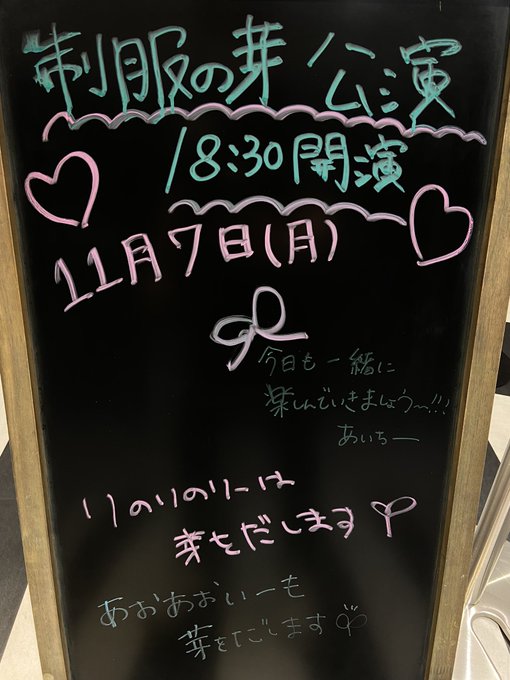 制服の芽 公演
18:30開演
11月7日(月)
今日も一緒に
楽しんでいきましょう〜!!!
あいちー
りのりのりーは
芽をだします
あおあおいーも
芽をだします